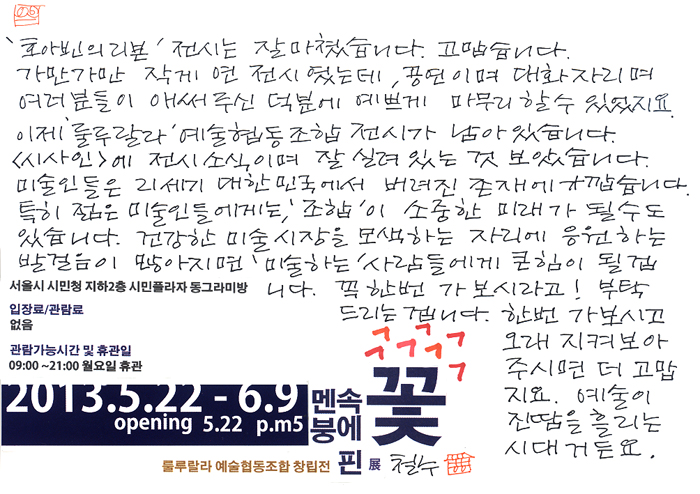 '효아빈의 리본' 전시는 잘 마쳤습니다. 고맙습니다.
가만가만 작게 연 전시였는데, 공연이며 대화자리며
여러분들이 애써주신 덕분에 예쁘게 마무리 할 수 있었지요.
이제 '룰루랄라' 예술협동조합 전시가 남아있습니다.
<시사인>에 전시소식이며 잘 실려 있는 것 보았습니다.
미술인들은 21세기 대한민국에서 버려진 존재에 가깝습니다.
특히 젊은 미술인들에게는, '조합'이 소중한 미래가 될 수도
있습니다. 건강한 미술시장을 모색하는 자리에 응원하는
발걸음이 많아지면 '미술하는' 사람들에게 큰힘이 될겁
니다. 꼭 한번 가 보시라고! 부탁
드리는 겁니다. 한번 가보시고
오래 지켜보아
주시면 더 고맙
지요. 예술이
진땀을 흘리는
시대거든요.
서울시 시민청 지하2층 시민플라자 동그라미방
입장료/관람료
없음
관람가능시간 및 휴관일
09:00 ~21:00 월요일 휴관
2013.5.22 - 6.9
opening 5.22 p.m5
멘붕 속에 핀 꽃 展
룰루랄라 예술협동조합 창립전
철수